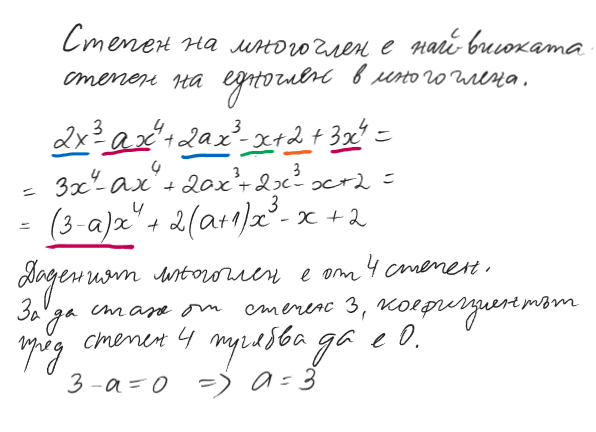 Степен на многочлен е най-високата
степен на едночлен в многочлена.
2x³-ax⁴+2ax³-x+2+3x⁴=
= 3x⁴-ax⁴+2ax³+2x³-x+2 =
= (3-a)x⁴+2(a+1)x³-x+2
Даденият многочлен е от 4 степен.
За да стане от степен 3, коефициентът
пред степен 4 трябва да е 0.
3-a=0 => a=3